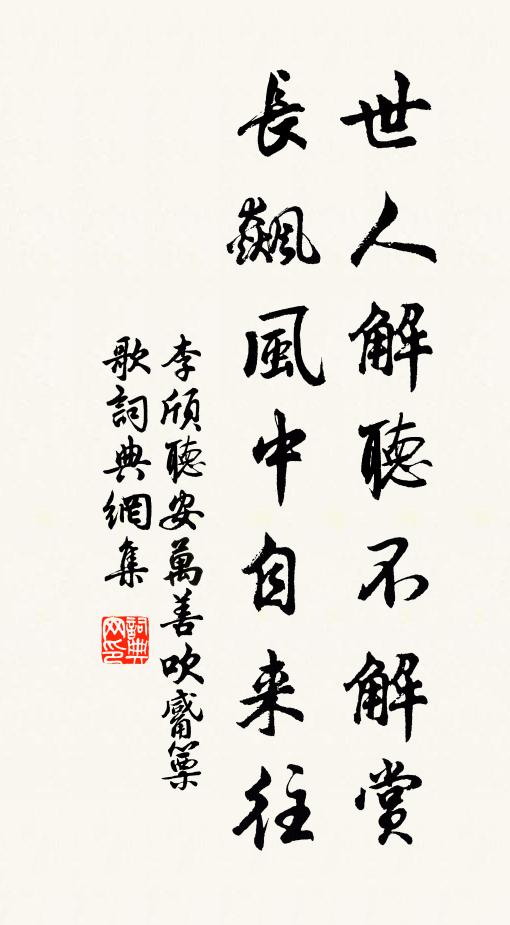 世人解聽不解賞
長飆風中自来往
李頎聽安萬善吹觱篥
歌詞典網集
詞典网印